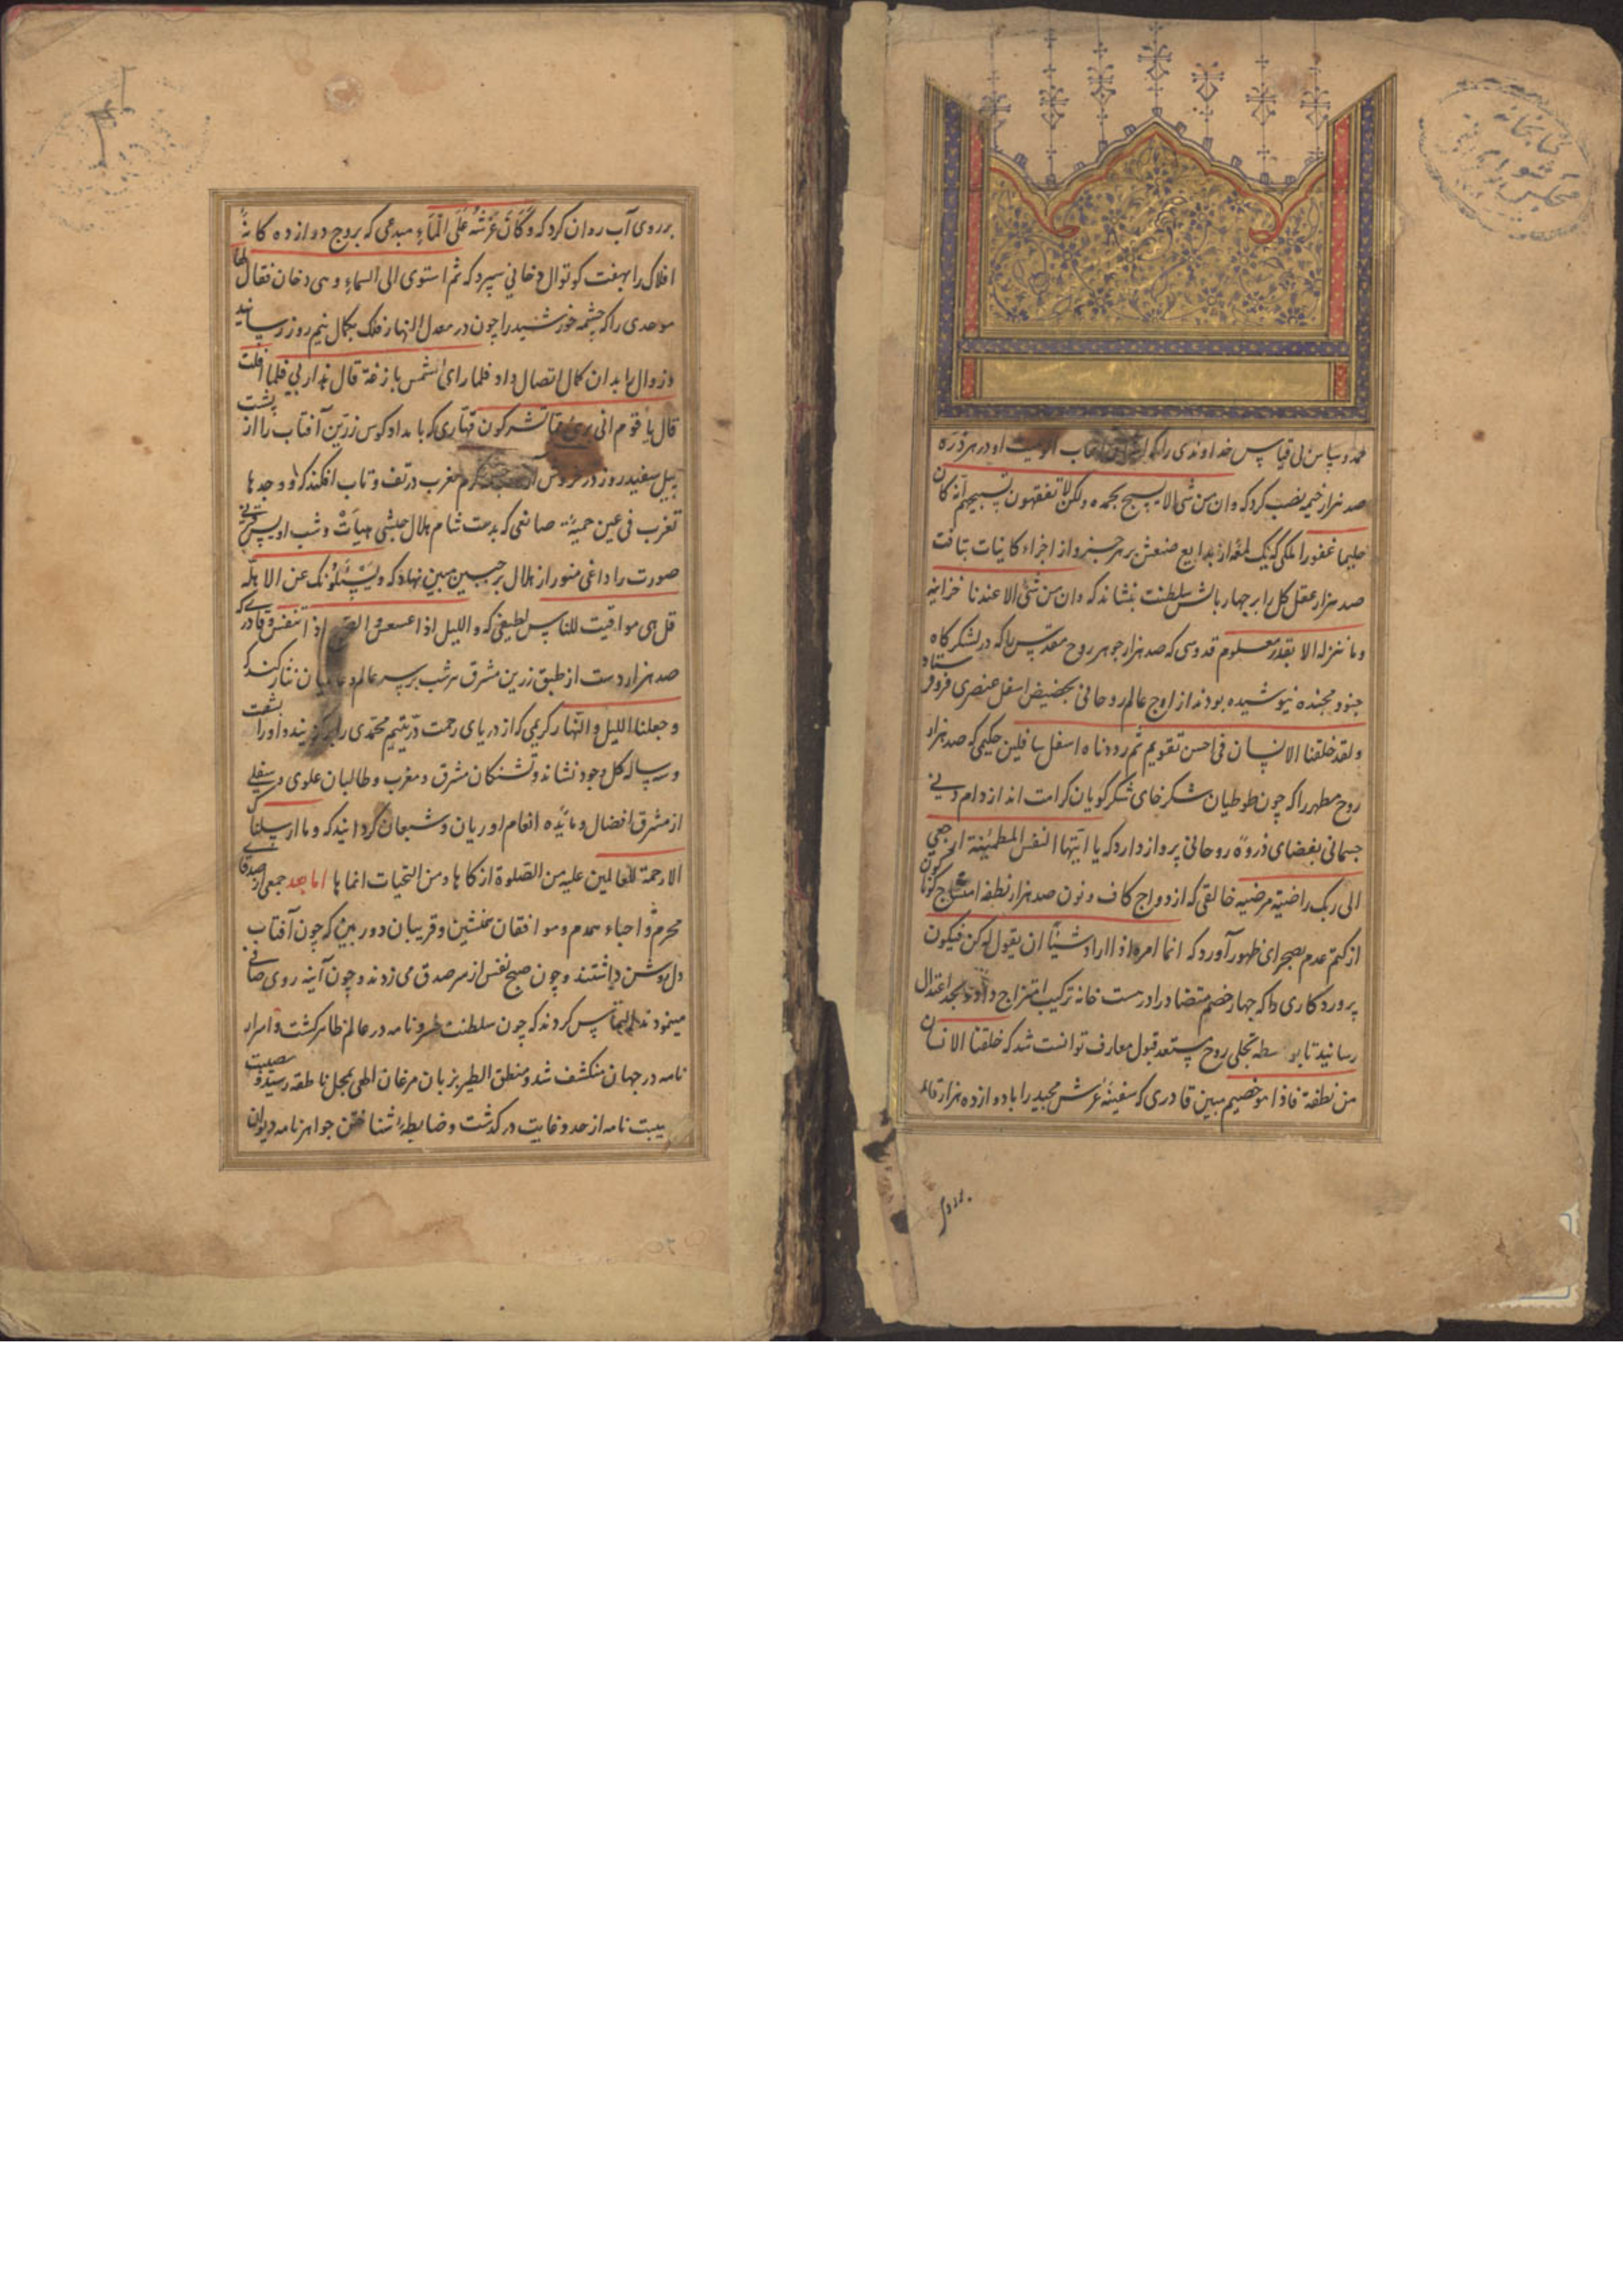 حمد و سپاس بی قیاس خداوندی را که از جناب الوهیت او در هر ذره
صد هزار خیمه نصب کرد که وان من شی الا یسبح بحمده ولکن لا تفقهون تسبیحهم انه کان
حلیما غفورا ملکی که یک لمعه از بدایع صنعش بر هر جزو از اجزاء کاینات بتافت
صد هزار عقل کل را بر چهار بالش سلطنت بنشاند که وان من شئ الا عندنا خزاینه
وما ننزله الا بقدر معلوم قدوسی که صد هزار جوهر روح مقدس را که در لشکر کاه
جنود مجنده نیوشیده بودند از اوج عالم روحانی بحضیض اسفل عنصری فرو فرستاد
ولقد خلقنا الانسان فی احسن تقویم ثم رددناه اسفل سافلین حکیمی که صد هزار
روح مطهر را که چون طوطیان شکرخای شکر کویان کرامت اند از دام
جسمانی بفضای ذروهٔ روحانی پرواز دارد که یا ایتها النفس المطمئنة ارجعی
الی ربک راضیة مرضیه خالقی که از ازدواج کاف و نون صد هزار نطفه امشاج کوناکون
از کتم عدم بصحرای ظهور آورد که انما امره اذا اراد شیئا ان یقول له کن فیکون
پروردکاری را که چهار خصم متضاد را در ست خانه ترکیب امتزاج داد و بحد اعتدال
رسانید تا بواسطه تجلی روح مستعد قبول معارف توانست شد که خلقنا الانسان
من نطفة فاذا هو خصیم مبین قادری که سفینهٔ عرش مجید را با دوازده هزار قائمه
بر روی آب روان کرد که وَكَانَ عَرْشُهُ عَلَى الْمَاءِ مبدعی که بروج دوازده کانه
افلاک را بهفت کوتوال دخانی سپرد که ثم استوی الی السماء وهی دخان فقال لها
موحدی را که چشمه خورشید را چون در معدل النهار فلک بکمال نیم روز رسانید
زوال را بدان کمال اتصال داد فلما رای الشمس بازغة قال هذا ربی فلما افلت
قال یا قوم انی بریٔ مما تشرکون قهاری که بامداد کوس زرین آفتاب را از پشت
پیل سفید روز در خروش مغرب در تف و تاب افکند که و وجدها
تغرب فی عین حمیة صانعی که بدست شام هلال حبشی هیأت و شب اویس قرنی
صورت را داغی منور از هلال بر جبین مبین نهاد که ویسئلونک عن الاهلة
قل هی مواقیت للناس لطیفی که واللیل اذا عسعس والصبح اذا تنفس قادری که
صد هزار دست از طبق زرین مشرق هر شب بر سر عالم و عالمیان نثار کند که
وجعلنا اللیل والنهار کریمی که از دریای رحمت در یتیم محمدی را برگزیده او را بشفت
ورساله کل وجود نشاند و تشنکان مشرق و مغرب و طالبان علوی و سفلی
از مشرق افضال و مائده انعام او ریان و شبعان کردانید که وما ارسلناک
الا رحمة للعالمین علیه من الصلوة ازکاها ومن التحیات انماها اما بعد جمعی از اصدقای
محرم و احباء همدم و موافقان نخشین و قریبان دوربین که چون آفتاب
دل روشن داشتند و چون صبح نفس از سر صدق می زدند و چون آینه روی صافی
مینمودند التماس کردند که چون سلطنت خسرو نامه در عالم ظاهر کشت و اسرار
نامه در جهان منکشف شد و منطق الطیر بزبان مرغان الهی بمحل ناطقه رسید و مصیبت
نامه از حد و غایت در کذشت و ضابطه شناختن جواهر نامه دیوان